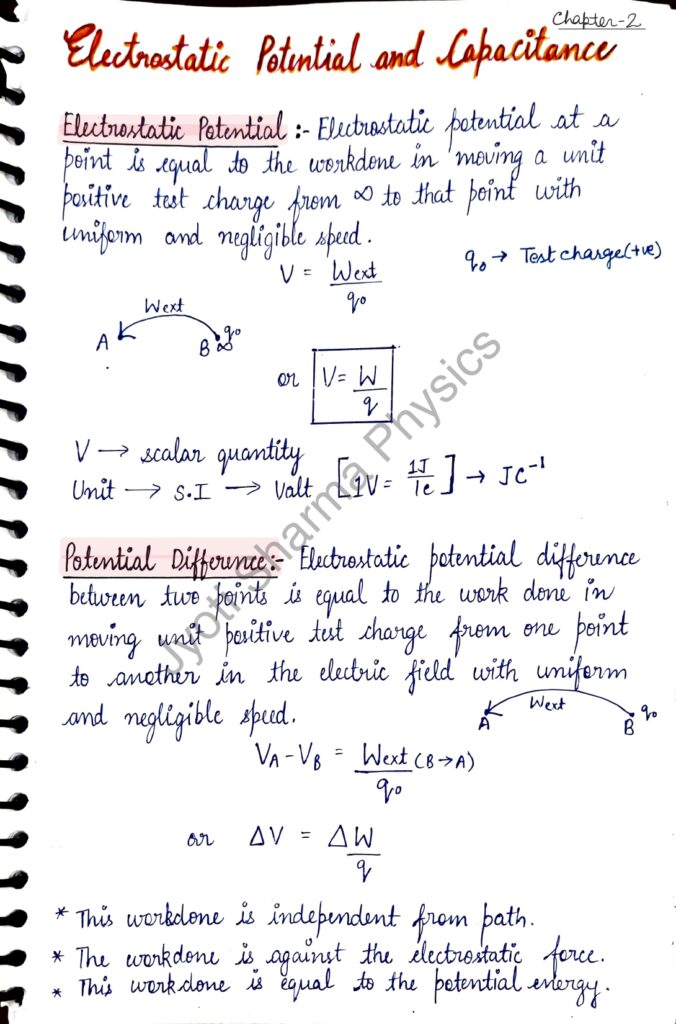 Chapter-2
Electrostatic Potential and Capacitance
Electrostatic Potential :- Electrostatic potential at a
point is equal to the workdone in moving a unit
positive test charge from ∞ to that point with
uniform and negligible speed.
q₀ → Test charge(+ve)
V = Wext/q₀
Wext
A B ∞ q₀
or V = W/q
V → scalar quantity
Unit → S.I → Valt [1V = 1J/1C] → JC⁻¹
Potential Difference:- Electrostatic potential difference
between two points is equal to the work done in
moving unit positive test charge from one point
to another in the electric field with uniform
and negligible speed.
Wext
A B q₀
VA - VB = Wext (B→A)/q₀
or ΔV = ΔW/q
* This workdone is independent from path.
* The workdone is against the electrostatic force.
* This workdone is equal to the potential energy.
Jyoti Sharma Physics